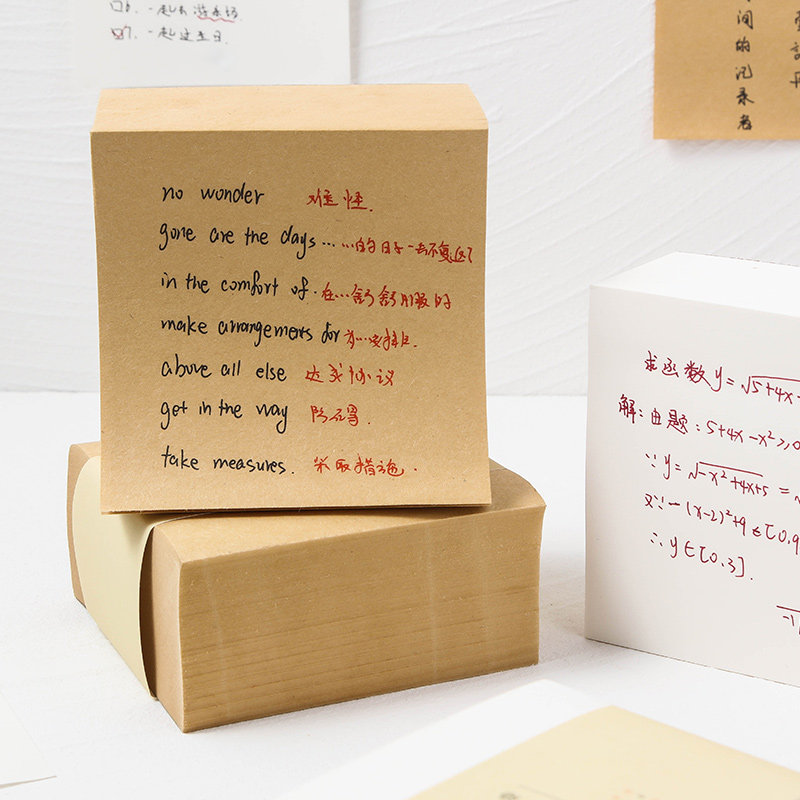 6. 一起去游乐场
7. 一起过生日.
间的记录者
no wonder 难怪.
gone are the days... ...的日子一去不复返了
in the comfort of. 在...舒舒服服的
make arrangements for 为...安排.
above all else 达成协议
get in the way 阻碍.
take measures. 采取措施.
求函数y=√5+4x-
解:由题:5+4x-x²≥0
∵y=√-x²+4x+5 =√
又∵-(x-2)²+9∈[0,9
∴y∈[0.3].